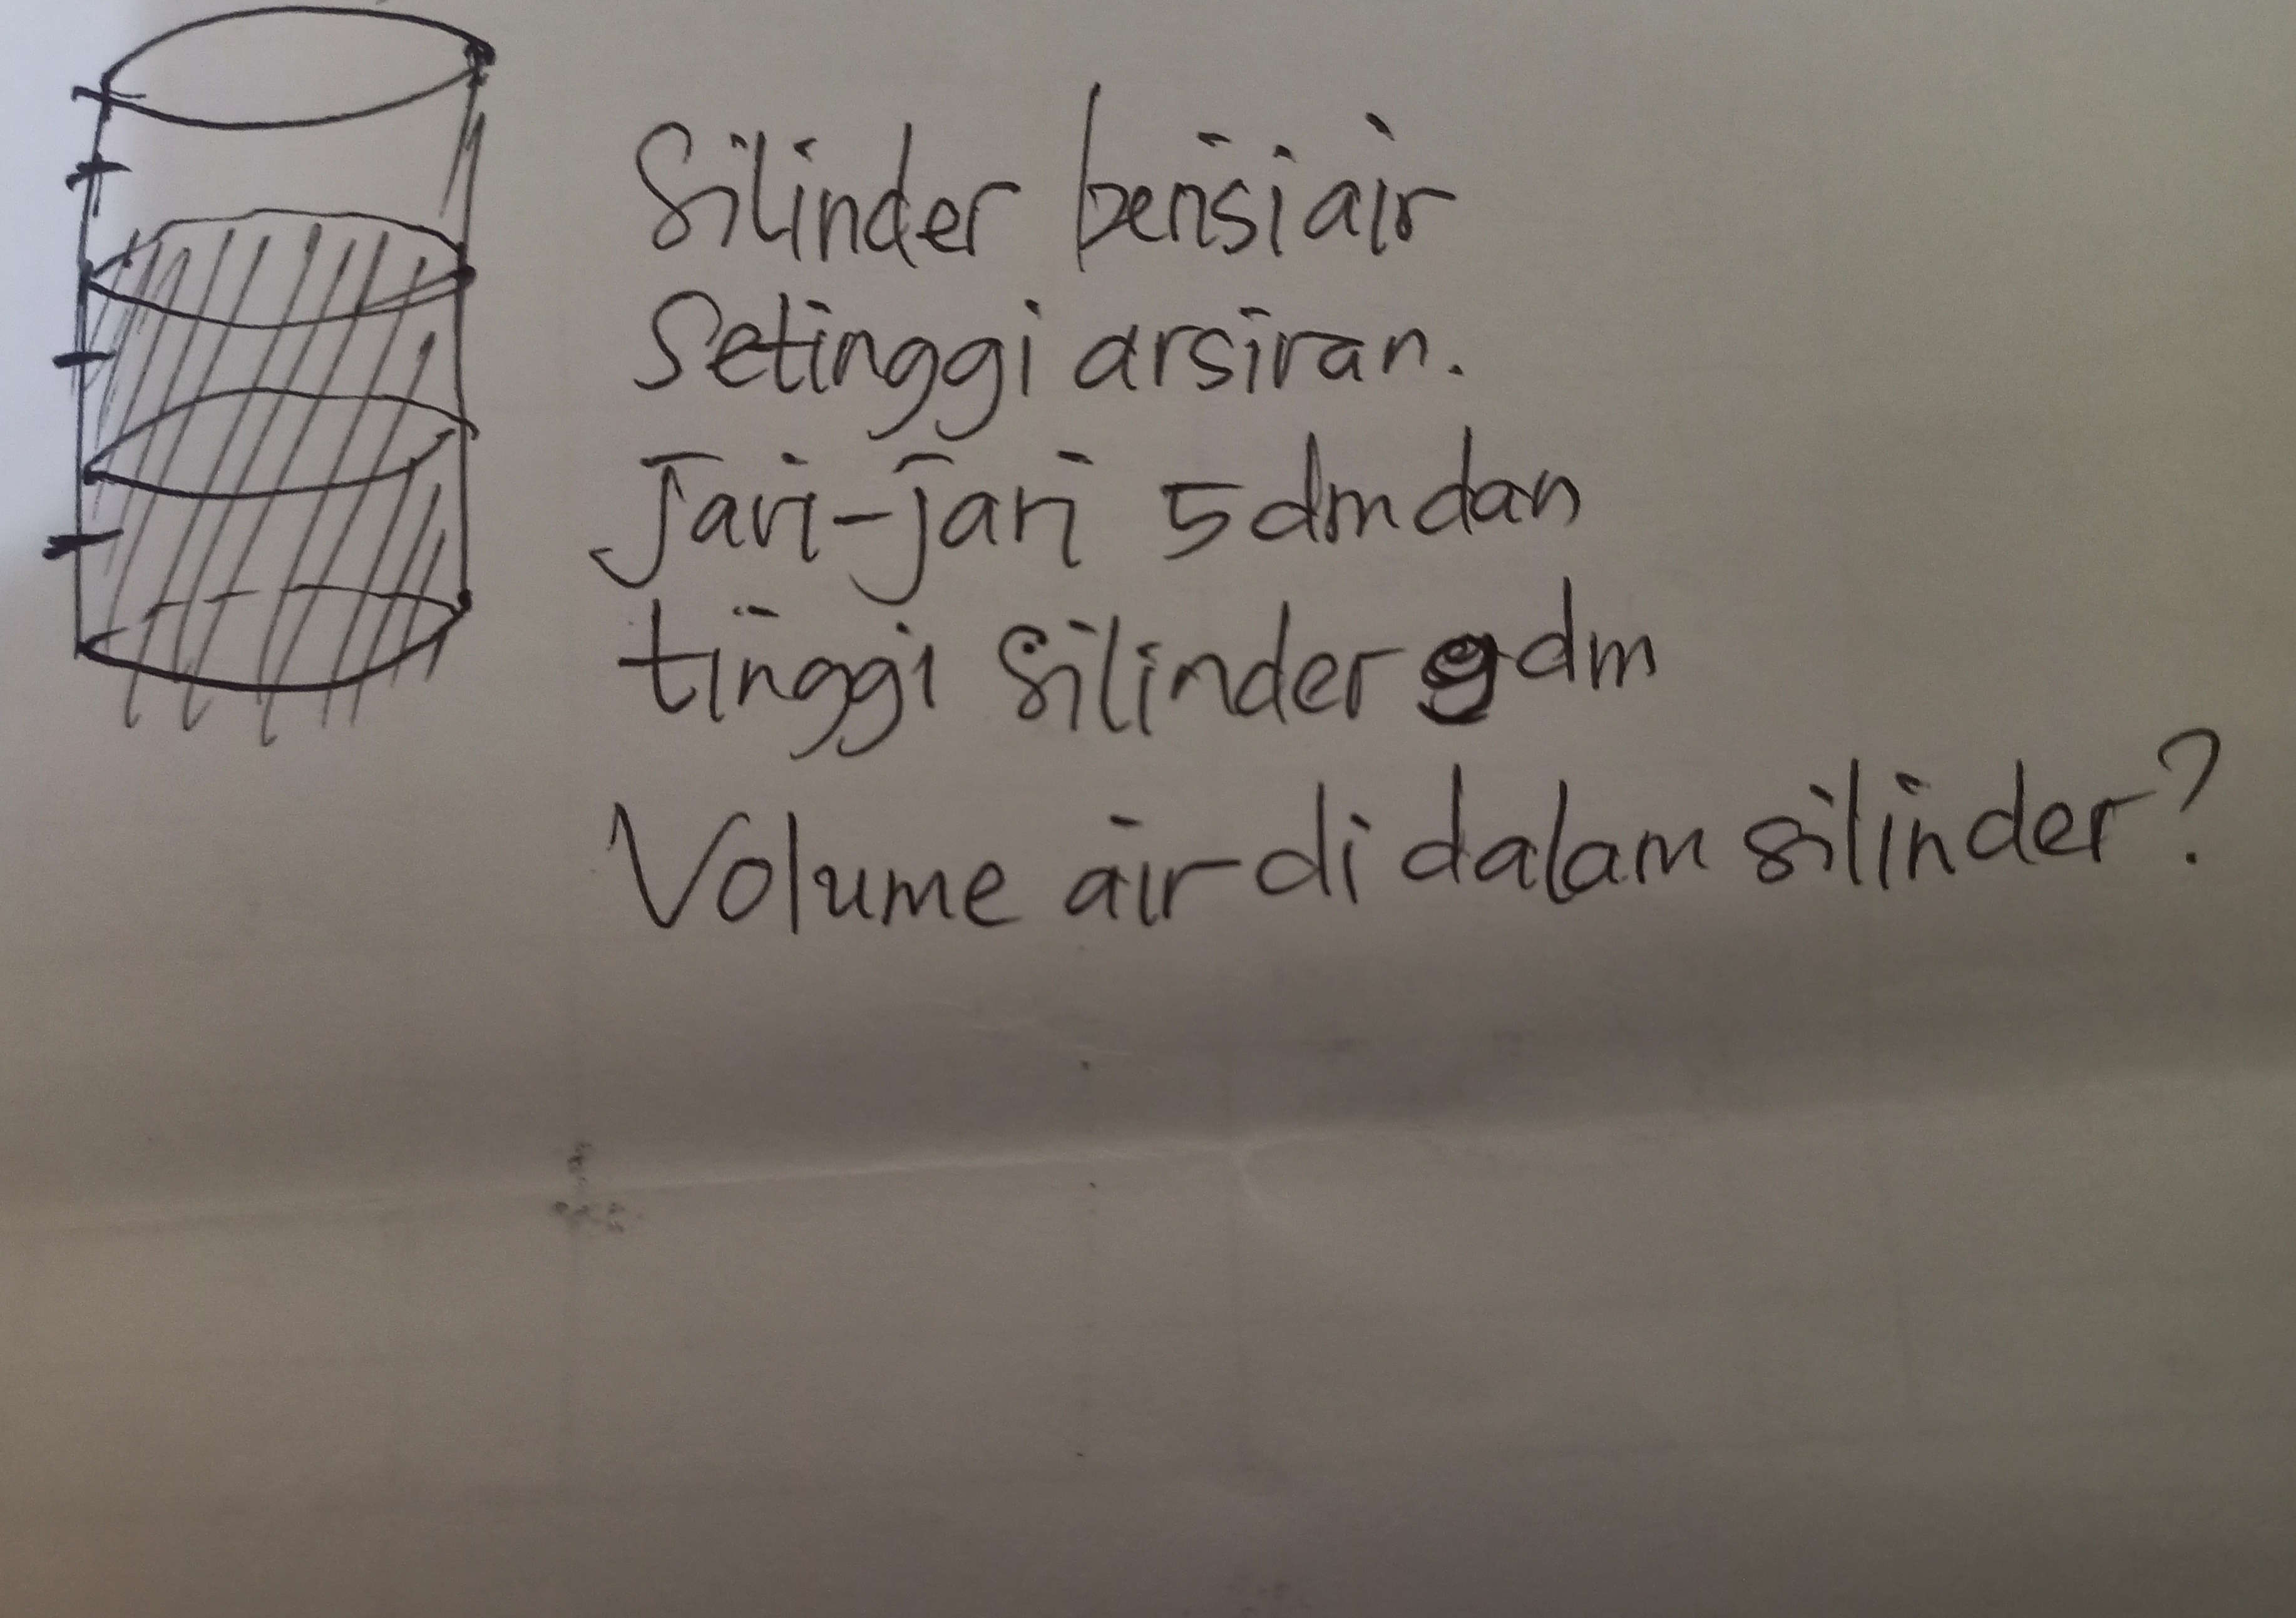 Silinder berisi air
Setinggi arsiran.
Jari-jari 5 dm dan
tinggi silinder 9 dm
Volume air di dalam silinder?